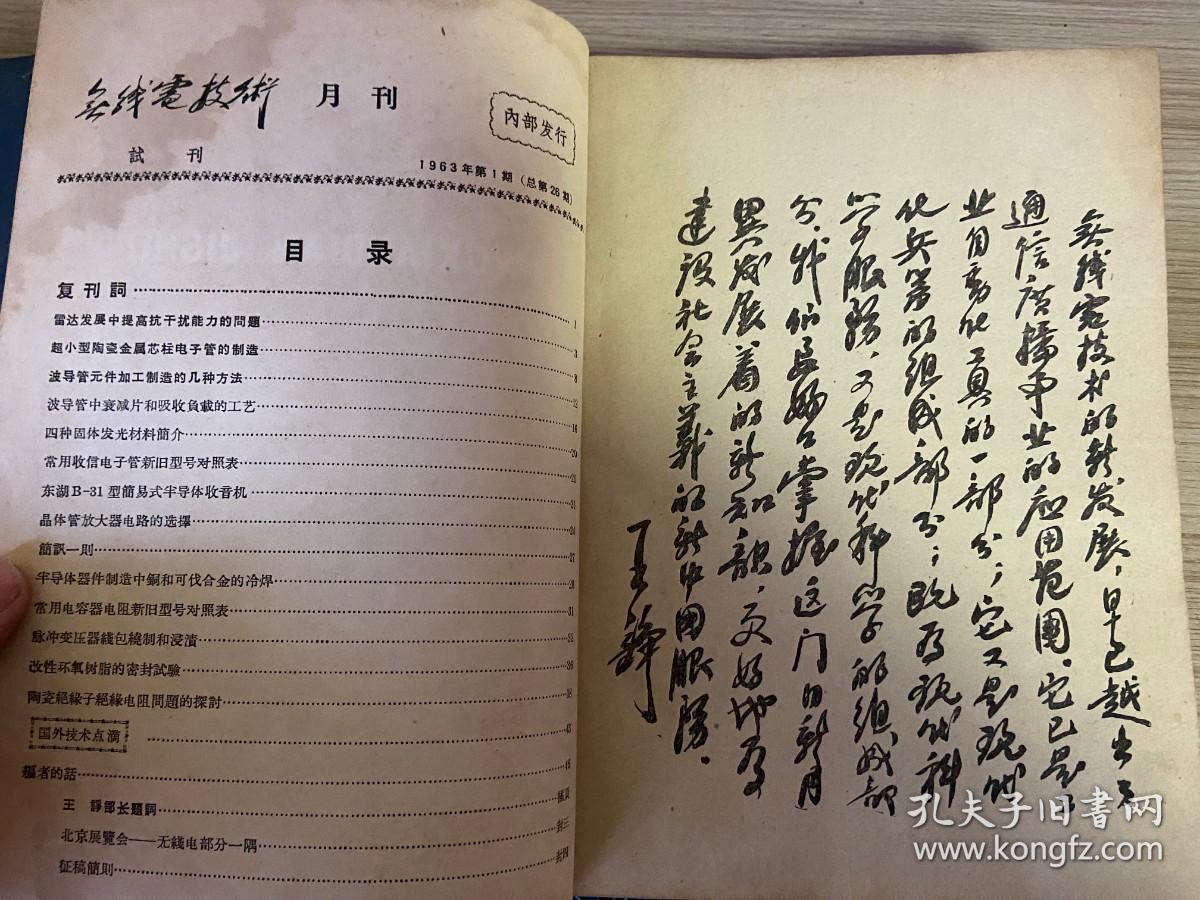 无线電技術 月刊
內部发行
試刊
1963年第1期（总第26期）
目录
复刊詞 1
雷达发展中提高抗干扰能力的問題 3
超小型陶瓷金属芯柱电子管的制造 8
波导管元件加工制造的几种方法 12
波导管中衰减片和吸收負載的工艺 16
四种固体发光材料簡介 20
常用收信电子管新旧型号对照表 21
东湖B-31型簡易式半导体收音机 21
晶体管放大器电路的选擇 24
簡訊一則 27
半导体器件制造中銅和可伐合金的冷焊 28
常用电容器电阻新旧型号对照表 31
脉冲变压器綫包繞制和浸漬 32
改性环氧树脂的密封試驗 36
陶瓷絕緣子絕緣电阻問題的探討 38
国外技术点滴 45
編者的話 48
王諍部长題詞 插頁
北京展覽会——无綫电部分一隅 封三
征稿簡則 封四
无线電技术的新发展，早已越出了
通信广播事业的应用范圍。它已是工
业自動化工具的一部分；它又是现代
化兵器的组成部分；既为现代科
学服務，又是现代科学的组成部
分。我们要掌握这门日新月
異发展着的新知識，更好地为
建设社会主義的新中国服務。
王諍
孔夫子旧书网
www.kongfz.com